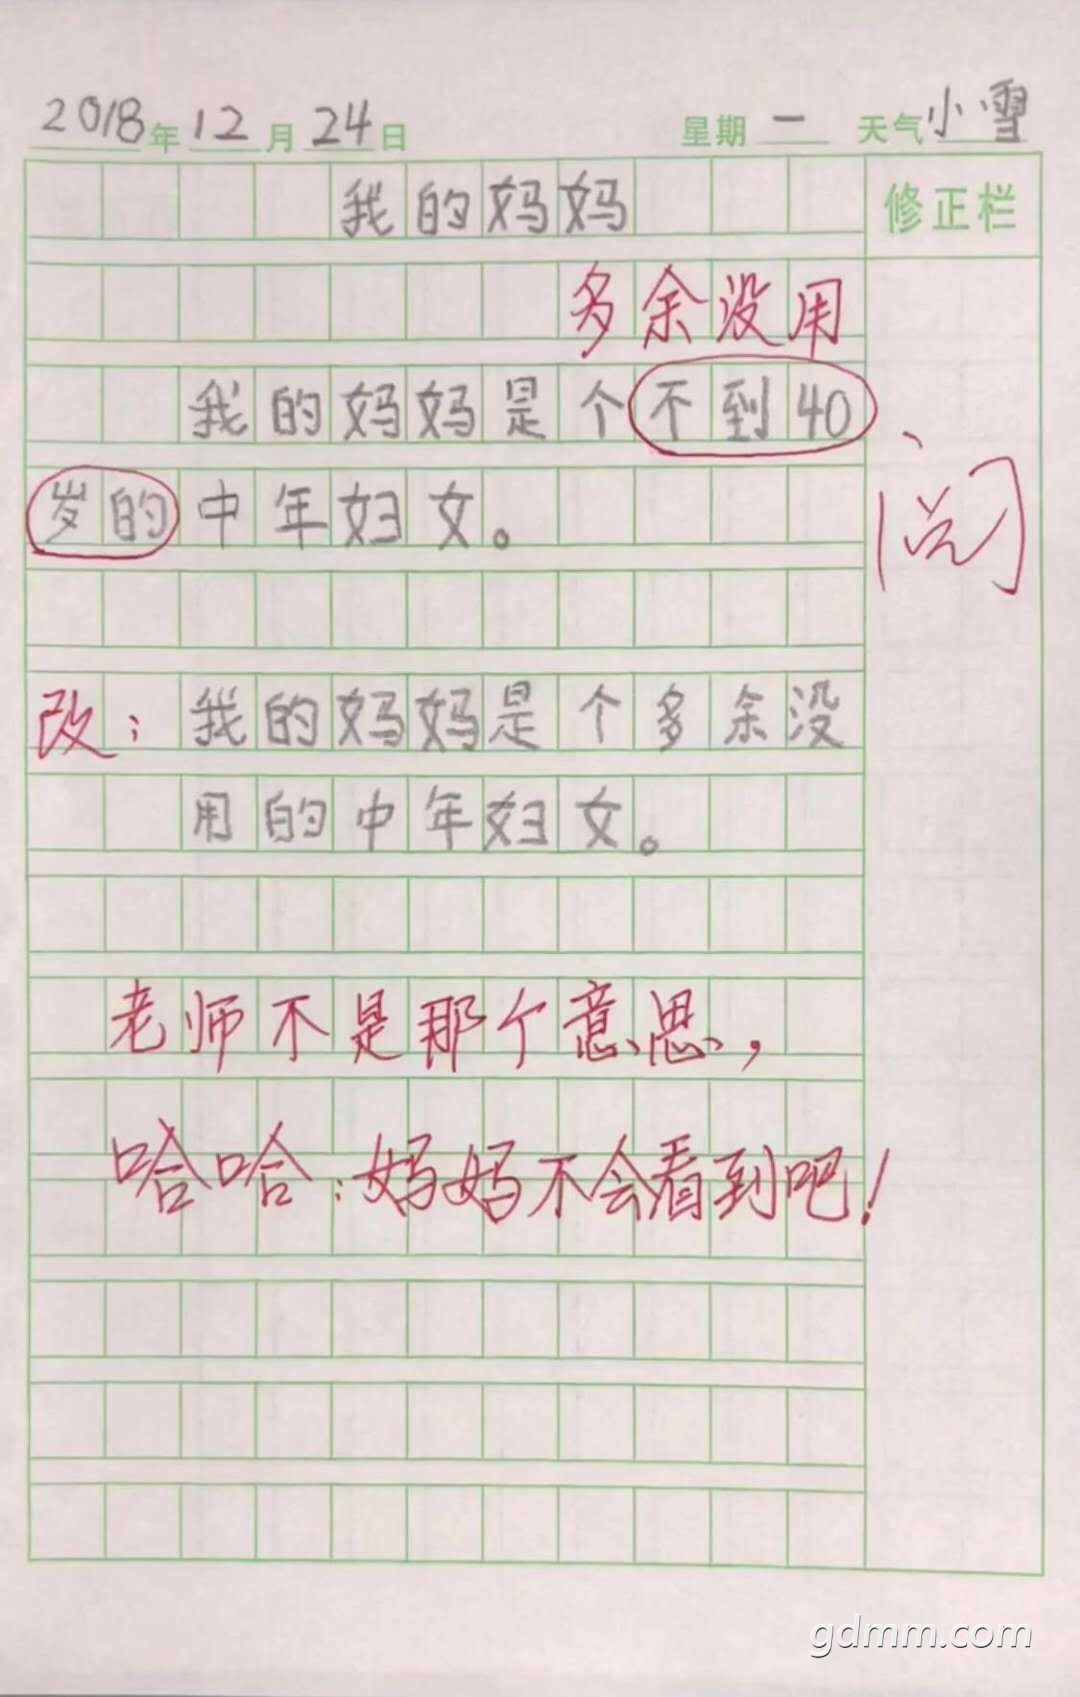 2018年12月24日 星期一 天气小雪
我的妈妈 修正栏
多余没用
我的妈妈是个不到40
岁的中年妇女。
阅
改：我的妈妈是个多余没
用的中年妇女。
老师不是那个意思，
哈哈：妈妈不会看到吧！
gdmm.com